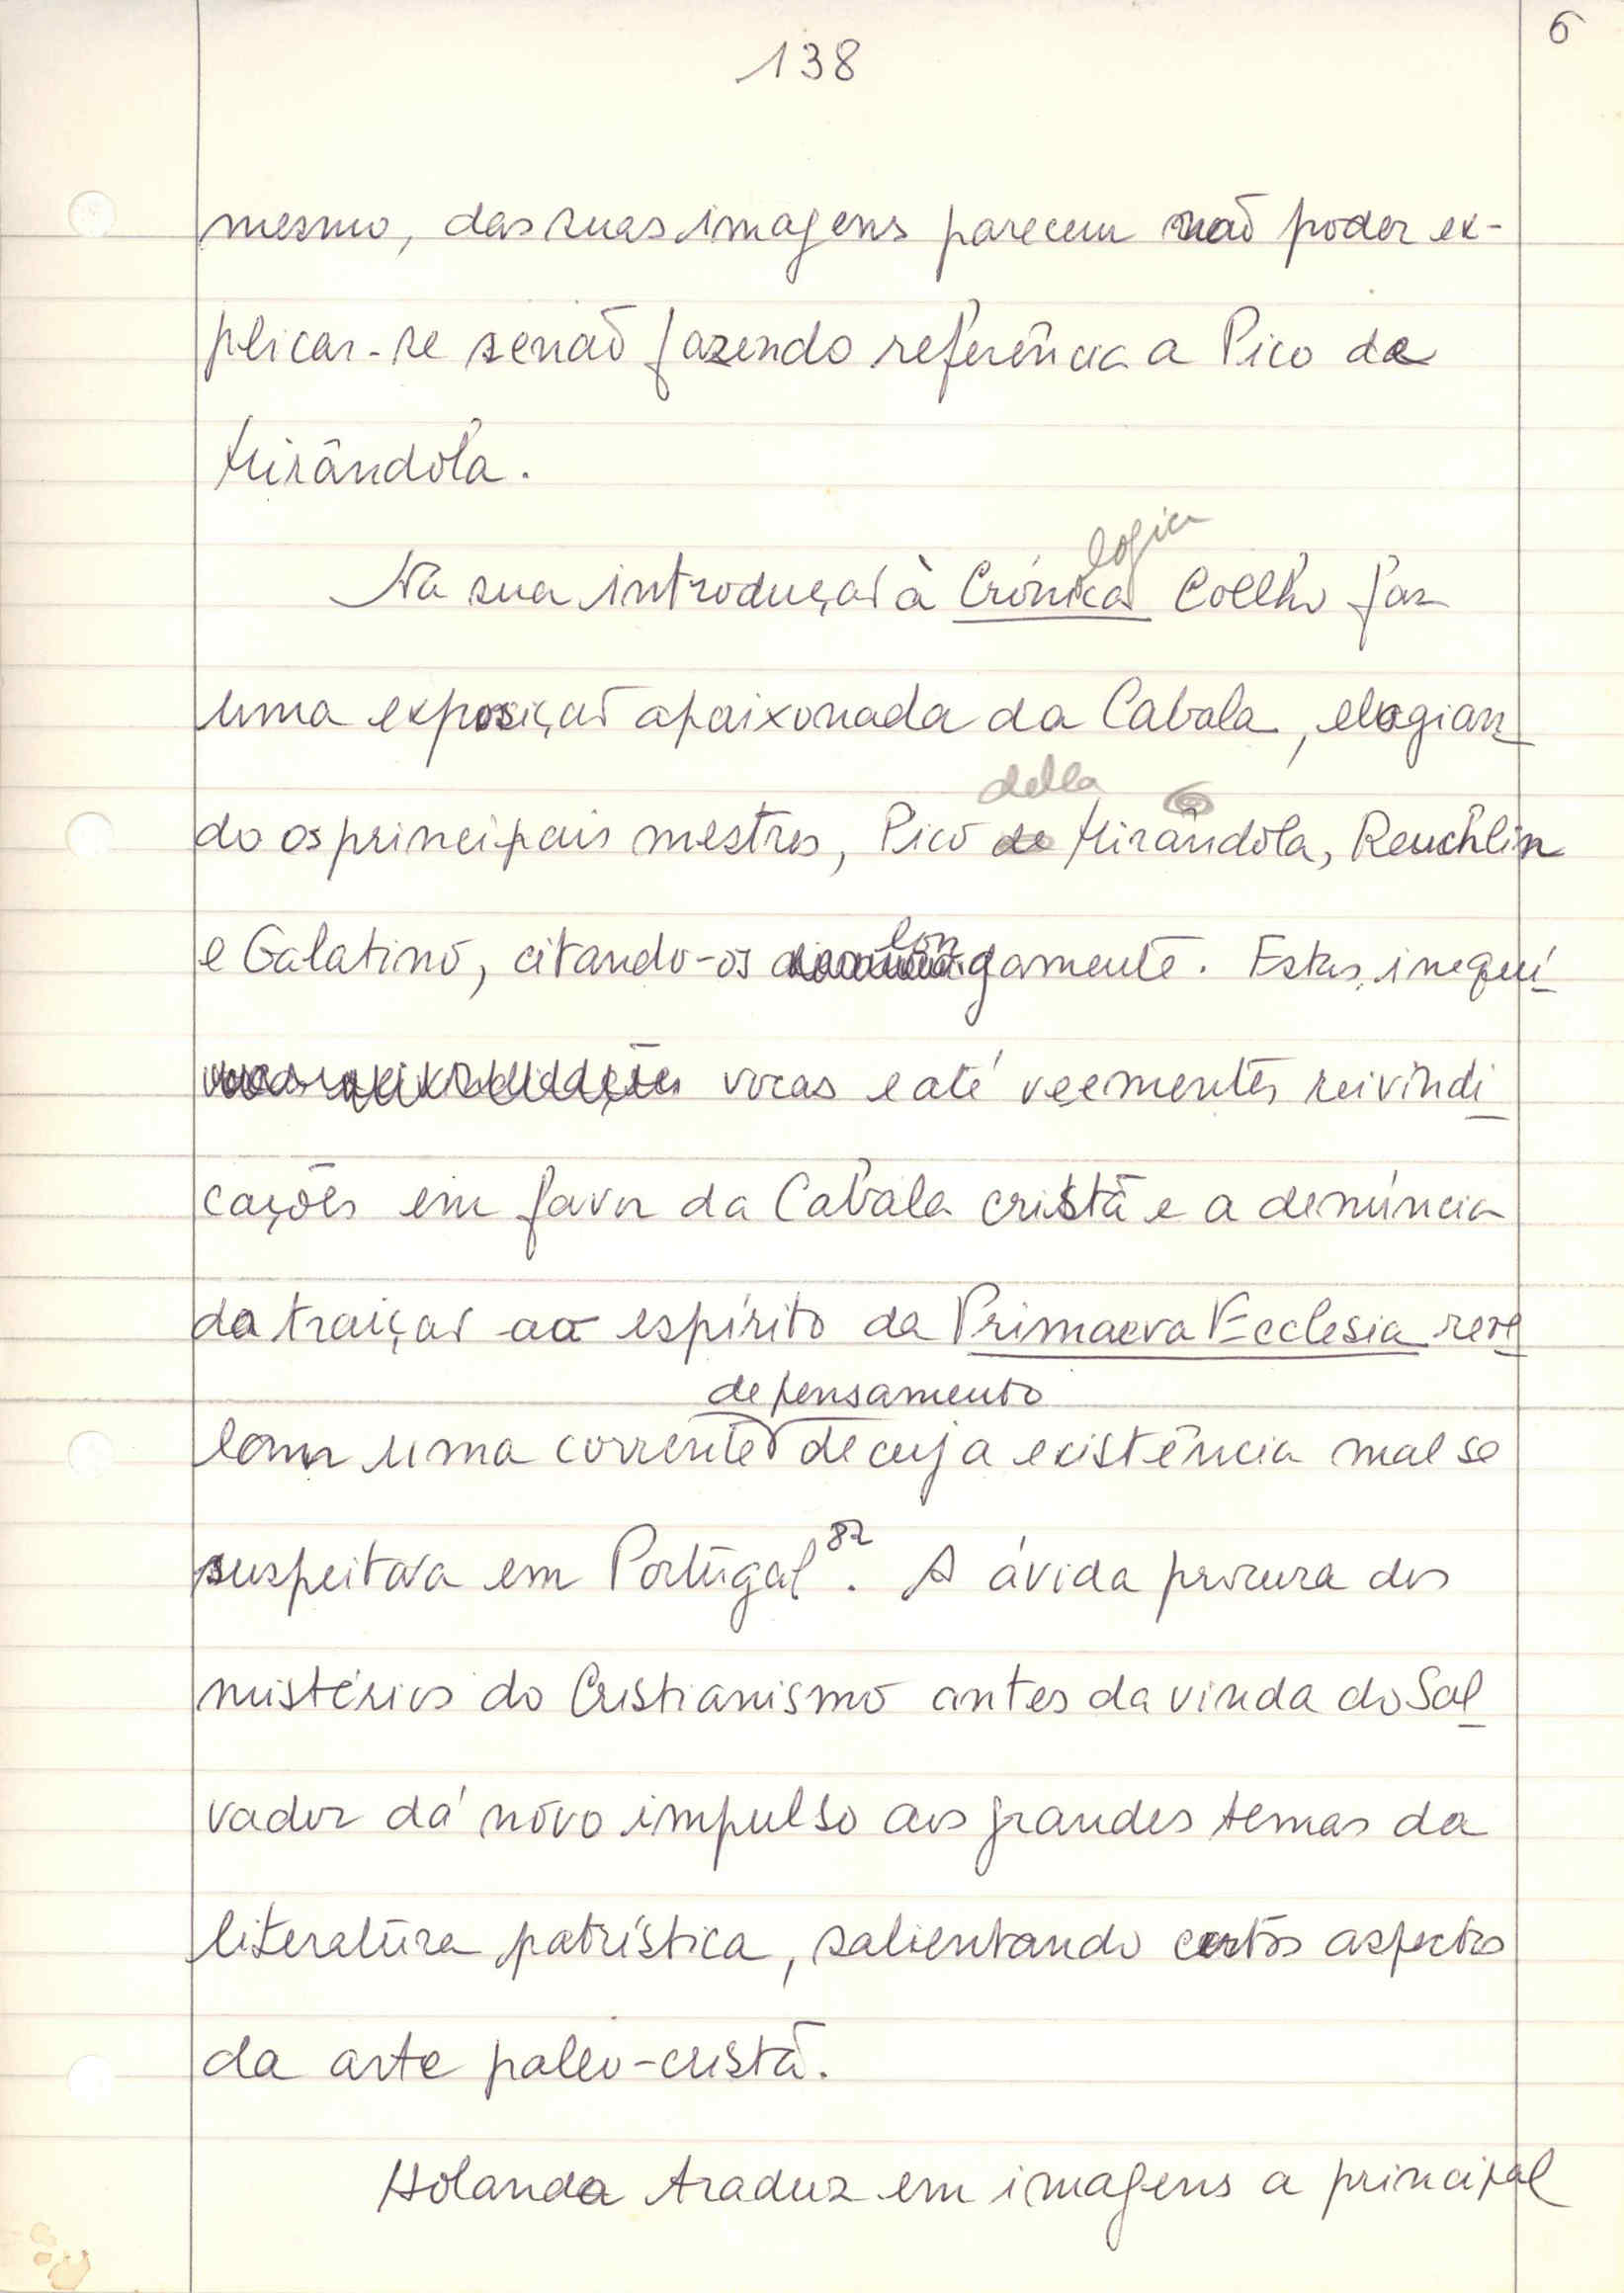 6
138
mesmo, das suas imagens parecem não poder ex-
plicar-se senão fazendo referência a Pico de
Mirândola.
logica
Na sua introdução à Crónica Coelho faz
uma exposição apaixonada da Cabala, elogian
della
do os principais mestres, Pico de Mirândola, Reuchlin
lon
e Galatino, citando-os gamente. Estas inequí
vocas e até veementes reivindi
cações em favor da Cabala cristã e a denúncia
da traição ao espírito da Primaeva Ecclesia reve
de pensamento
lam uma corrente de cuja existência mal se
suspeitava em Portugal 82. A ávida procura dos
mistérios do Cristianismo antes da vinda do Sal
vador dá novo impulso aos grandes temas da
literatura patrística, salientando certos aspectos
da arte paleo-cristã.
Holanda traduz em imagens a principal